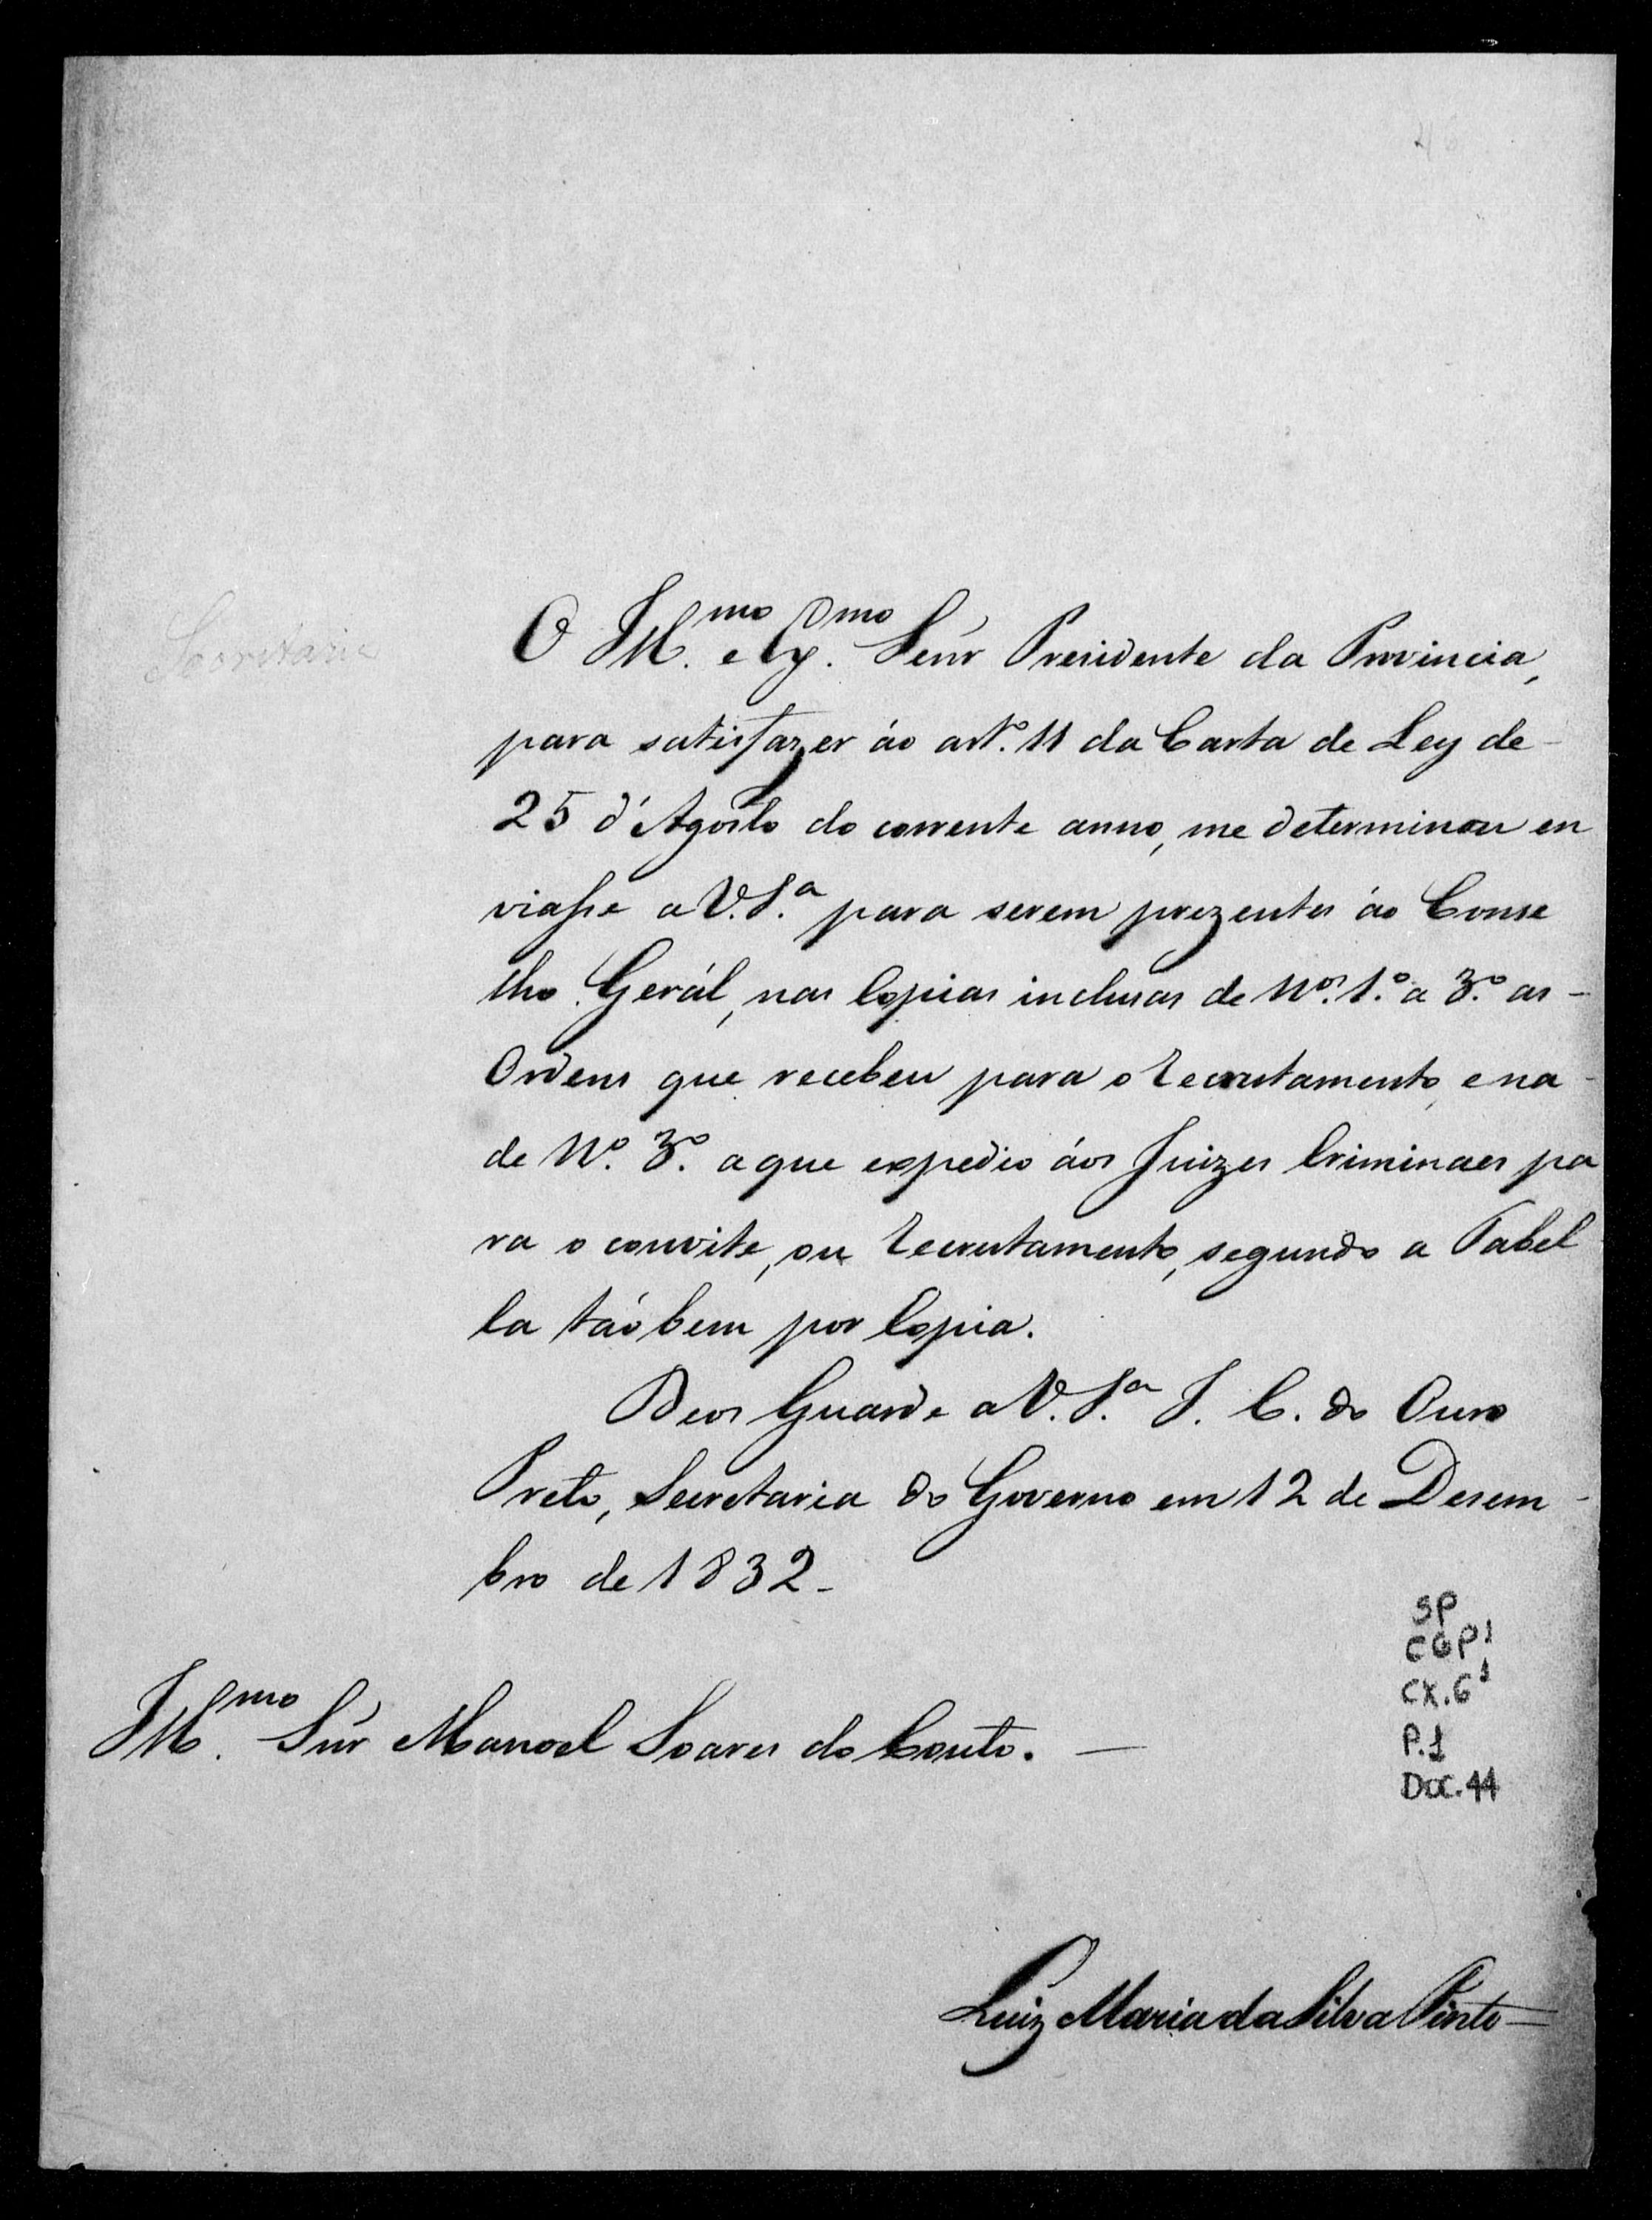 Secretaria
O Ill.mo e Ex.mo Senr Presidente da Provincia,
para satisfazer áo art.º 11 da Carta de Ley de
25 d'Agosto do corrente anno, me determinou en
viasse a V.S.ª para serem prezentes áo Conse
lho Gerál, nas Copias inclusas de N.os 1.º a 3.º as
Ordens que recebeu para o recrutamento, e na
de N.º 3.º a que expedio áos Juizes Criminaes pa
ra o convite, ou recrutamento, segundo a Tabel
la táobem por Copia.
Deos Guarde a V.S.ª I. C. do Ouro
Preto, Secretaria do Governo em 12 de Desem
bro de 1832.
Ill.mo Snr Manoel Soares do Couto.
SP
CGP1
CX.61
P.1
DOC.44
Luiz Maria da Silva Pinto